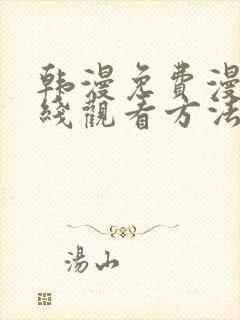 韩漫免費漫
綫觀看方法
湯山